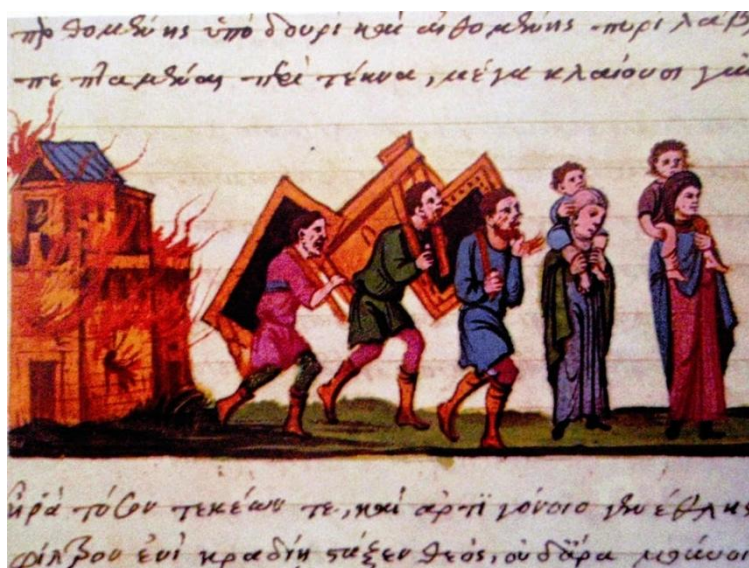 περθομένης ὑπὸ δουρὶ καὶ αἰθομένης πυρὶ λάβ
πεπταμέναι περὶ τέκνα, μέγα κλαίουσι γυ
ἦρα τόσον τεκέων τε, καὶ ἀρτιγόνοιο γενέθλης
φίλτρον ἐνὶ κραδίῃ στάξεν θεός, οὐδ' ἄρα μούνοι